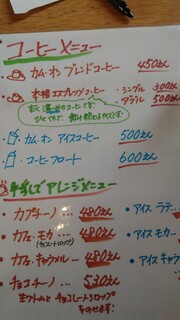 コーヒーメニュー
カム・オン ブレンドコーヒー 450えん
本格エスプレッソコーヒー ・シングル 300えん
・ダブル 500えん
カム・オン アイスコーヒー 500えん
コーヒーフロート 600えん
牛乳でアレンジメニュー
・カプチーノ … 480えん
・アイス ラテ…
・カフェ モカ … 480えん
(チョコレートシロップ)
・アイス モカ…
・カフェ キャラメル… 480えん
・アイス キャラ
・チョコチーノ … 530えん
生クリームとチョコレートシロップ
のせます!